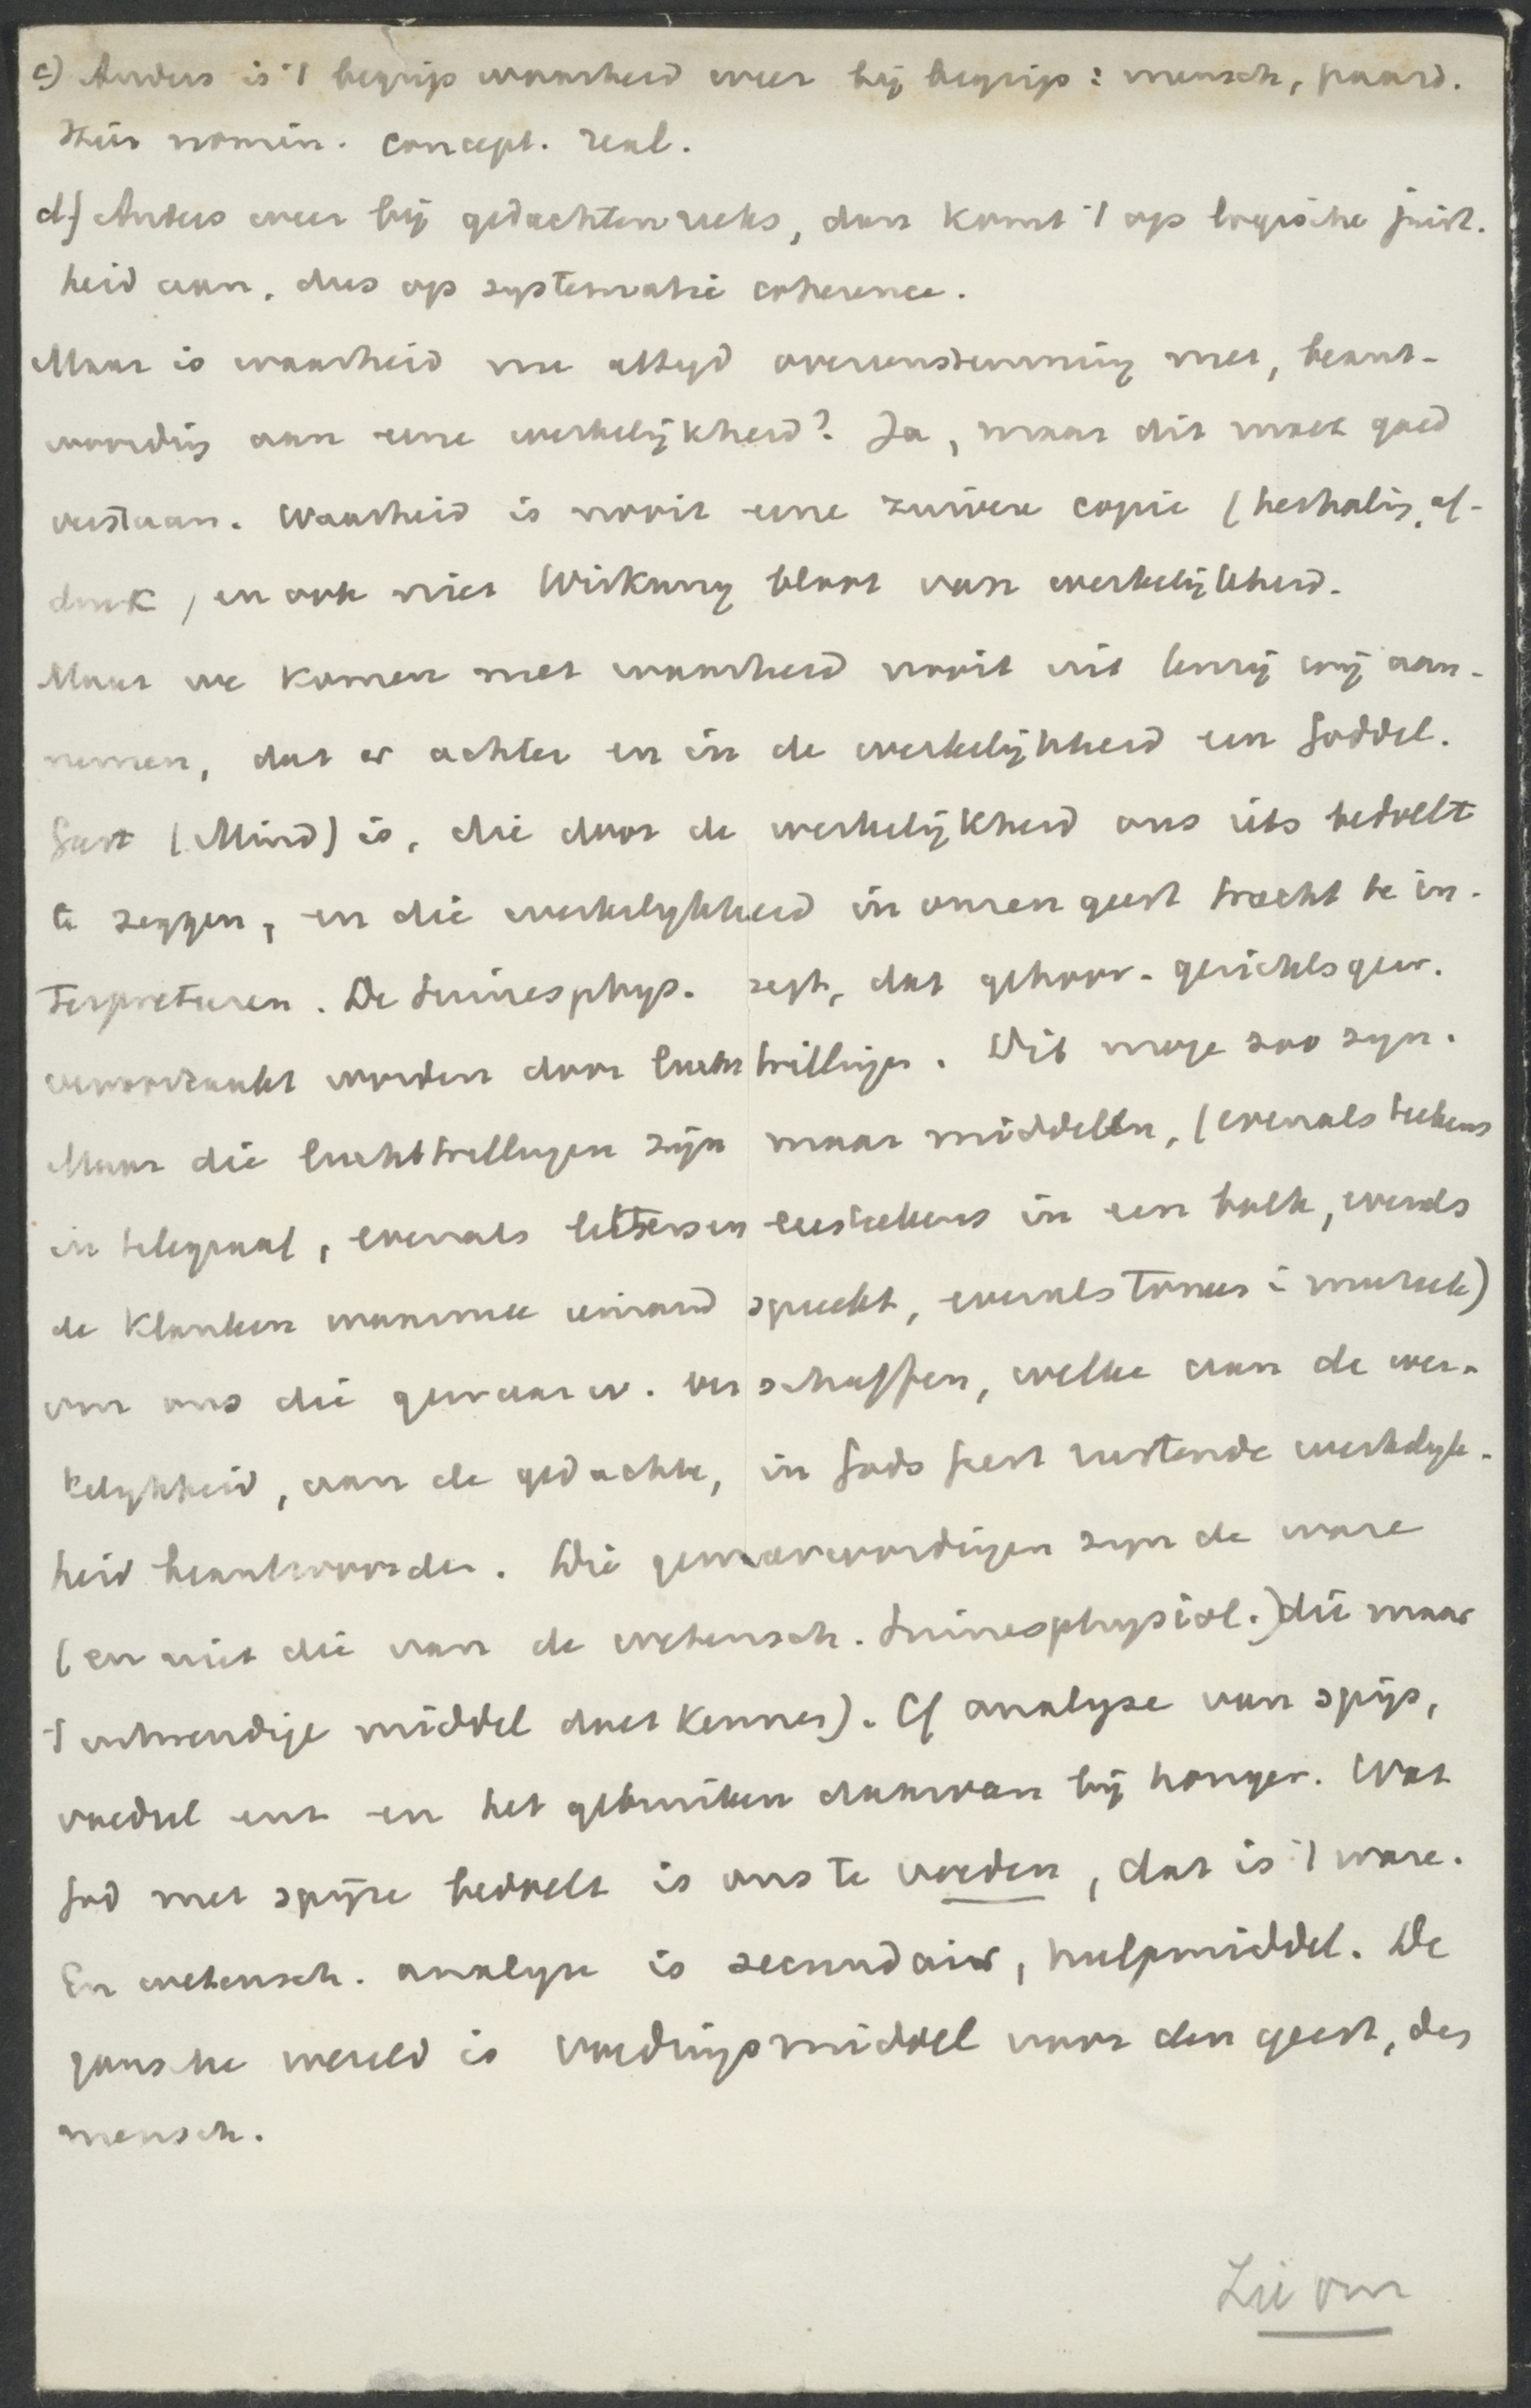 c) Anders is 't begrip waarheid weer bij begrip: mensch, paard.
Hier nomin. concept. real.
d) Anders weer bij gedachtenreeks, dan komt 't op logische juist-
heid aan, dus op systematic coherence.
Maar is waarheid nu altyd overeenstemming met, beant-
woordig aan eene werkelijkheid? Ja, maar dit moet goed
verstaan. Waarheid is nooit eene zuivere copie (herhalig, af-
druk, en ook niet Wirkung bloot van werkelijkheid.
Maar we komen met waarheid nooit uit tenzij wij aan-
nemen, dat er achter en in de werkelijkheid een Goddel.
Geest (Mind) is, die door de werkelijkheid ons iets bedoelt
te zeggen, en die werkelijkheid in onzen geest tracht te in-
terpreteren. De Sinnesphys. zegt, dat gehoor- gezichtsgew.
veroorzaakt worden door luchttrillingen. Dit moge zoo zyn.
Maar die luchttrillingen zijn maar middelen, (evenals teekens
in telegraaf, evenals letters en leesteekens in een boek, evenals
de klanken waarmee iemand spreekt, evenals tonen i muziek)
om ons die gewaarw. verschaffen, welke aan de wer-
kelykheid, aan de gedachte, in Gods geest rustende werkelyk-
heid beantwoorden. Die gewaarwordigen zyn de ware
(en niet die van de wetensch. Sinnesphysiol.) die maar
't uitwendige middel doet kennen). Cf analyse van spijs,
voedsel enz en het gebruiken daarvan bij honger. Wat
God met spijze bedoelt is ons te voeden, dat is 't ware.
En wetensch. analyse is secundair, hulpmiddel. De
gansche wereld is voedingsmiddel voor den geest, des
mensch.
Zie om